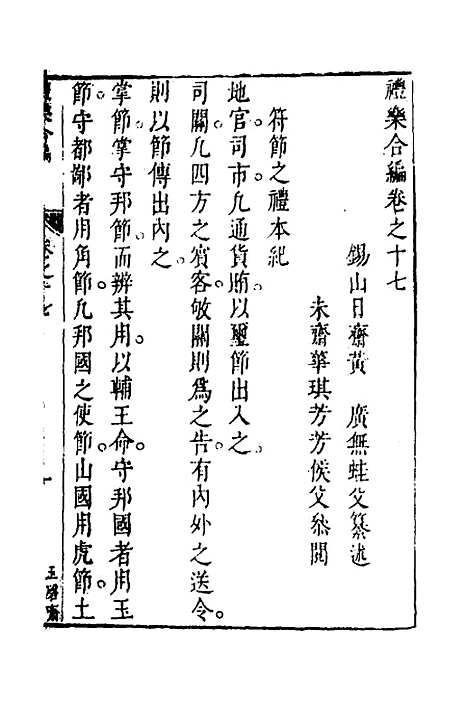 禮樂合編卷之十七
錫山日齋黃 廣無蛙父纂述
未齋華琪芳芳侯父叅閱
符節之禮本紀
地官司市凡通貨賄以璽節出入之
司關凡四方之賓客敂關則爲之告有内外之送令
則以節傳出内之
掌節掌守邦節而辨其用以輔王命守邦國者用玉
節守都鄙者用角節凡邦國之使節山國用虎節土
樂合編
玉磬齋